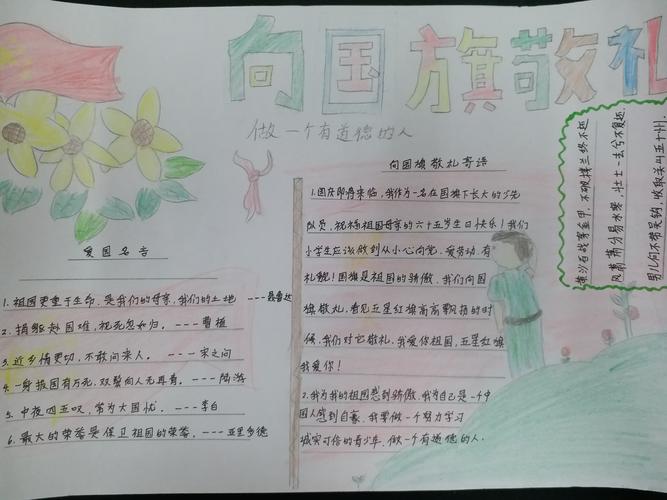 向国旗敬礼
做一个有道德的人
爱国名言
1.祖国更重于生命,是我们的母亲,我们的土地 ---聂鲁达
2.捐躯赴国难,视死忽如归。----曹植
3.近乡情更切,不敢问来人。----宋之问
4.一身报国有万死,双鬓向人无再青。----陆游
5.中夜四五叹,常为大国忧。----李白
6.最大的荣誉是保卫祖国的荣誉。----亚里多德
向国旗敬礼寄语
1.国庆即将来临,我作为一名在国旗下长大的少先
队员,祝杨祖国母亲的六十五岁生日快乐!我们
小学生应该做到从小心向党、爱劳动、有
礼貌!国旗是祖国的骄傲,我们向国
旗敬礼,看见五星红旗高高飘扬的时
候,我们对它敬礼。我爱你祖国,五星红旗
我爱你!
2.我为我的祖国感到骄傲,我为自己是一个中
国人感到自豪。我要做一个努力学习
诚实可信的青少年,做一个有道德的人.
黄沙百战穿金甲,不破楼兰终不还
风萧萧兮易水寒,壮士一去兮不复还.
男儿何不带吴钩,收取关山五十州.